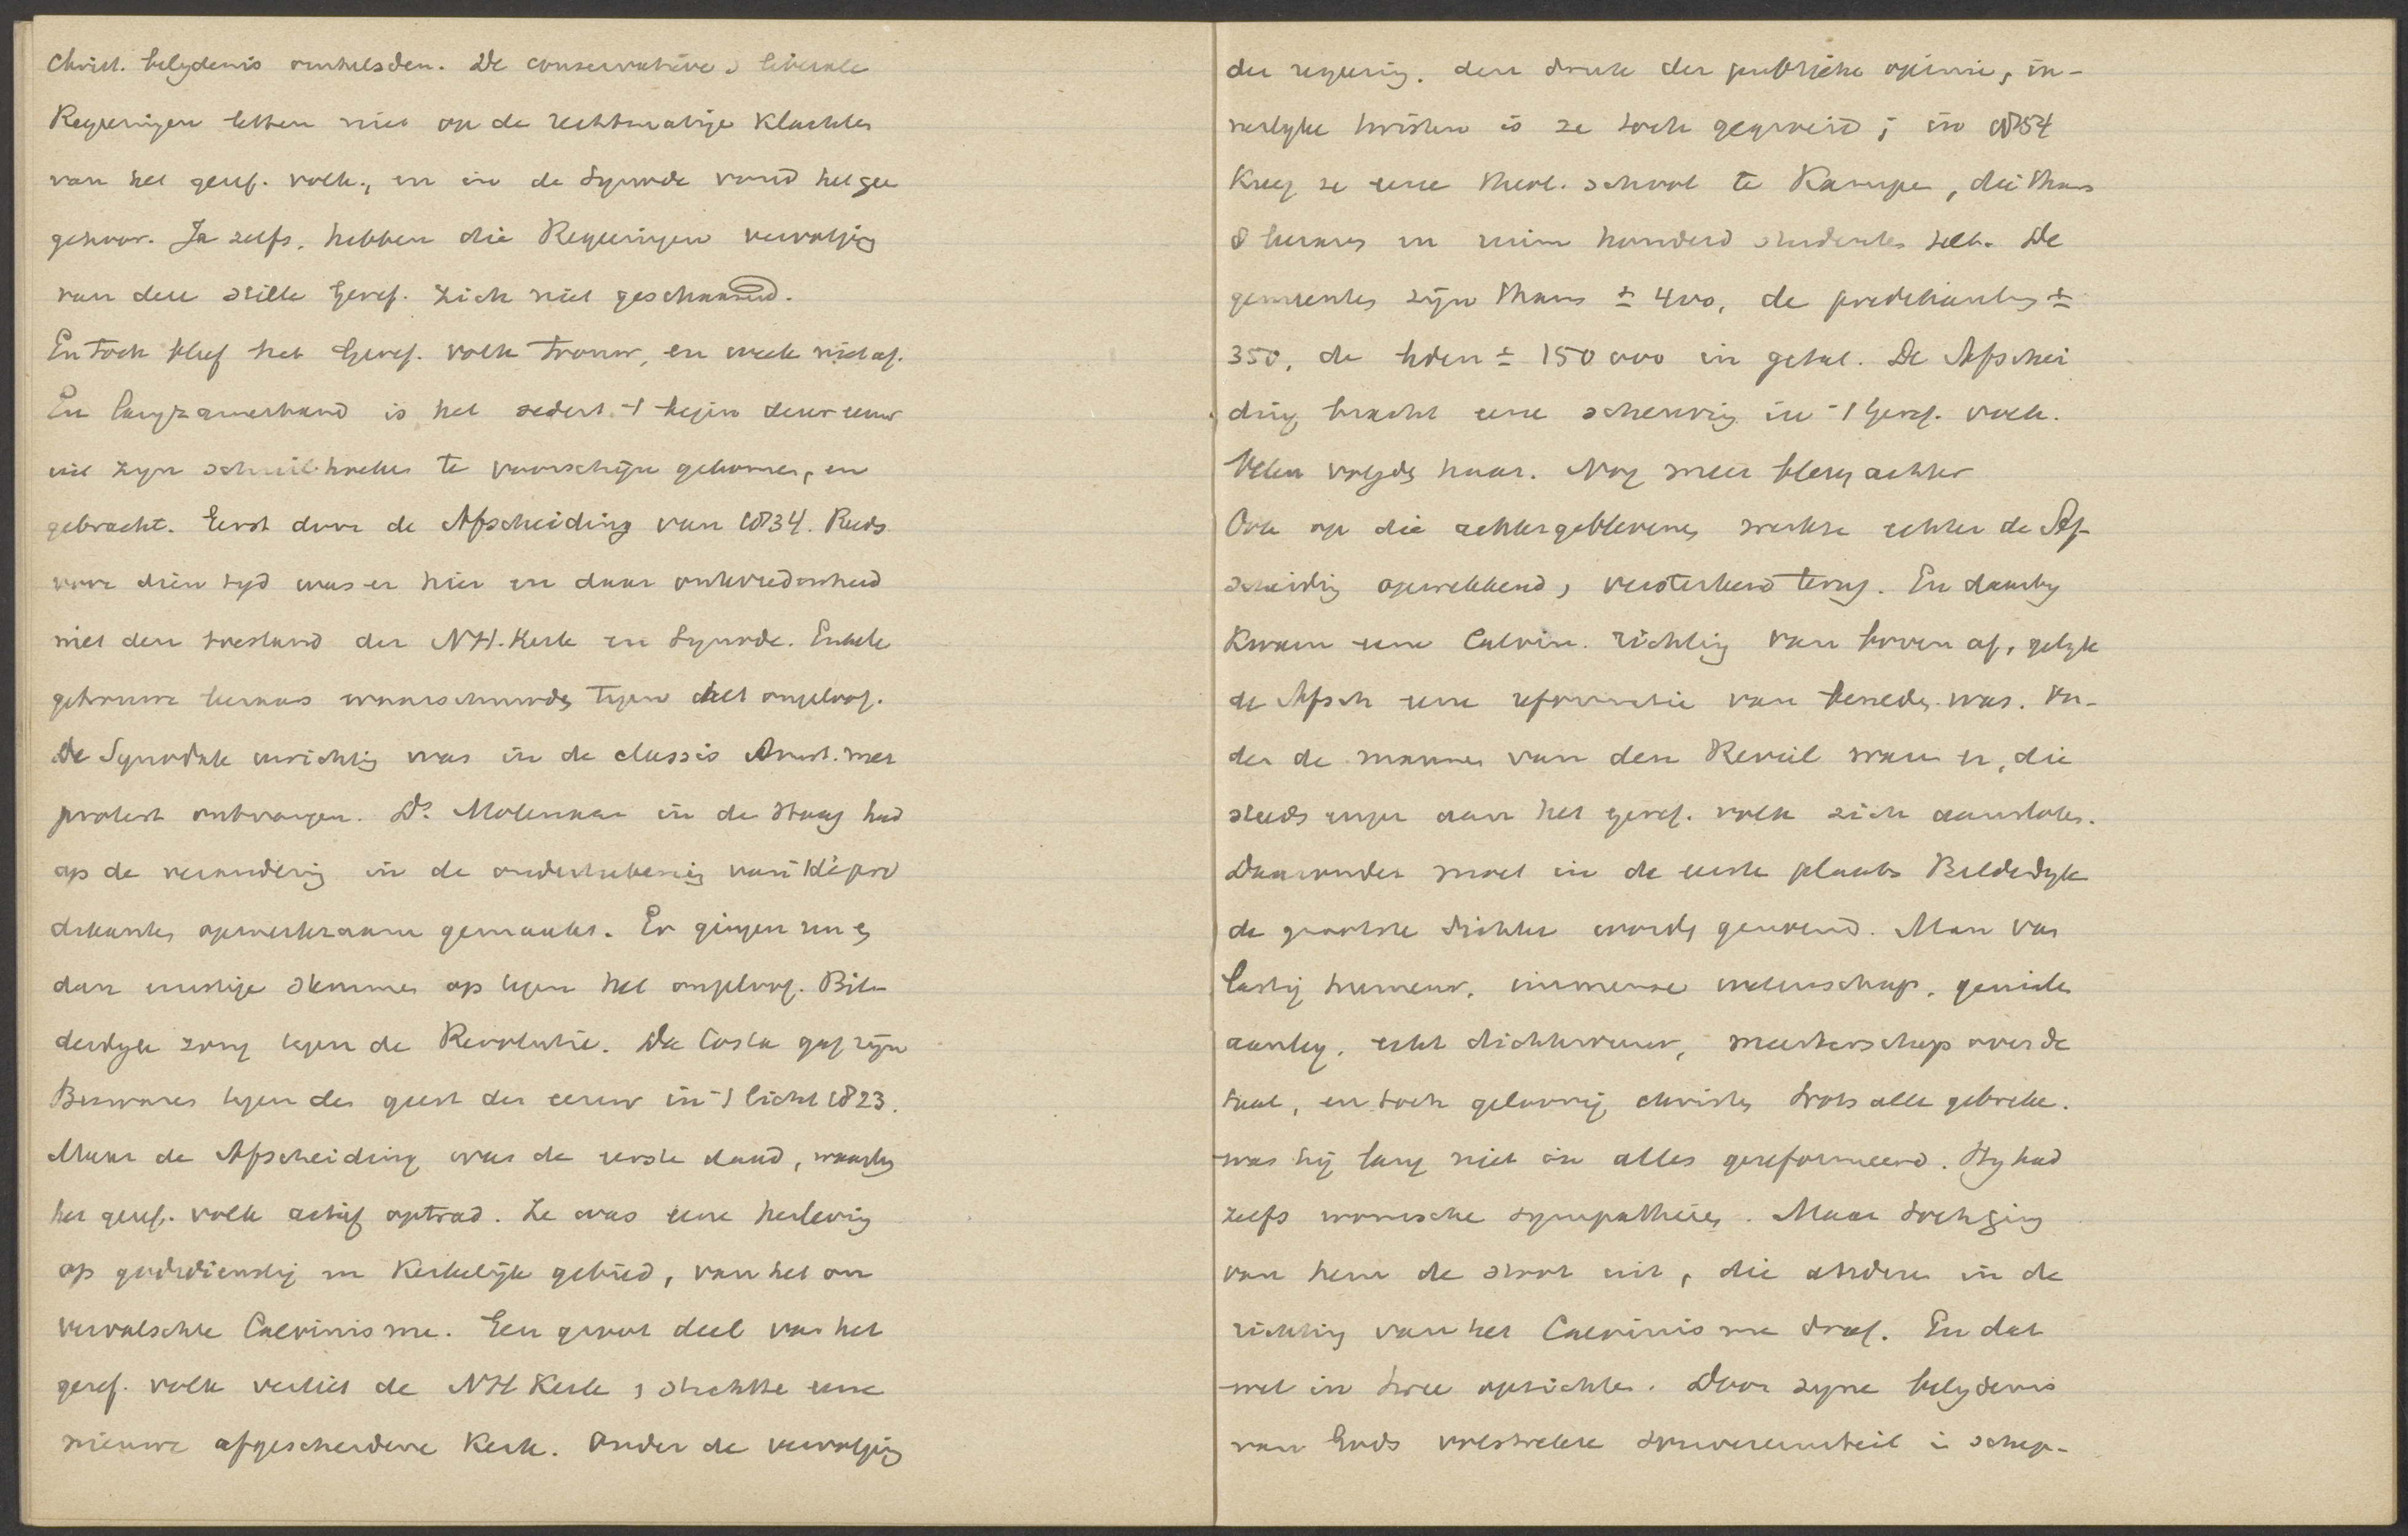 Christ. belydenis omhelsden. De conservatieve & liberale
Regeeringen letten niet op de rechtmatige klachten
van het geref. volk, en in de Synode vond het gee
gehoor. Ja zelfs, hebben die Regeeringen vervolging
van den stille Geref. zich niet geschaamd.
En toch bleef het Geref. volk trouw, en week niet af.
En langzamerhand is het sedert 't begin deser eeuw
uit zyn schuilhoeken te voorschijn gekomen, en
gebracht. Eerst door de Afscheiding van 1834. Reeds
voor dien tyd was er hier en daar ontevredenheid
met den toestand der NH. Kerk en Synode. Enkele
getrouwe leraars waarschuwden tegen het ongeloof.
De Synodale inrichting was in de classis Amst. met
protest ontvangen. Ds. Molenaar in de Haag had
op de verandering in de onderteekening van de pre
dikanten opmerkzaam gemaakt. Er gingen nu en
dan ernstige stemmen op tegen het ongeloof. Bil-
derdyk zong tegen de Revolutie. Da Costa gaf zijn
Bezwaren tegen den geest der eeuw in 't licht 1823.
Maar de Afscheiding was de eerste daad, waarby
het geref. volk actief optrad. Ze was eene herleving
op godsdienstig en Kerkelijk gebied, van het on
vervalschte Calvinisme. Een groot deel van het
geref. volk verliet de NH Kerk & stichtte eene
nieuwe afgescheidene Kerk. Onder de vervolging
der regeering, den druk der publieke opinie, in-
nerlyke twisten is ze toch gegroeid; in 1854
Kreeg ze eene theol. school te Kampen, die thans
8 leraars en ruim honderd studenten telt. De
gemeenten zijn thans ± 400, de predikanten ±
350, de leden ± 150 000 in getal. De Afschei
ding bracht eene scheuring in 't Geref. volk.
Velen volgden haar. Nog meer bleven achter
Ook op die achtergeblevenen werkte echter de Af-
scheiding opwekkend, versterkend terug. En daarby
Kwam eene Calvin. richting van boven af, gelyk
de Afsch eene reformatie van beneden was. On-
der de mannen van den Reveil waren er, die
steeds enger aan het geref. volk zich aansloten.
Daaronder moet in de eerste plaats Bilderdyk
de grootste dichter worden genoemd. Man van
lastig humeur, immense wetenschap, geniale
aanleg, echt dichtvuur, meesterschap over de
taal, en toch geloovig christen trots alle gebreken.
was hij lang niet in alles gereformeerd. Hy had
zelfs roomsche sympathieën. Maar toch ging
van hem de stoot uit, die anderen in de
richting van het Calvinisme dreef. En dat
wel in twee opzichten. Door zyne belydenis
van Gods volstrekte souvereiniteit in schep-